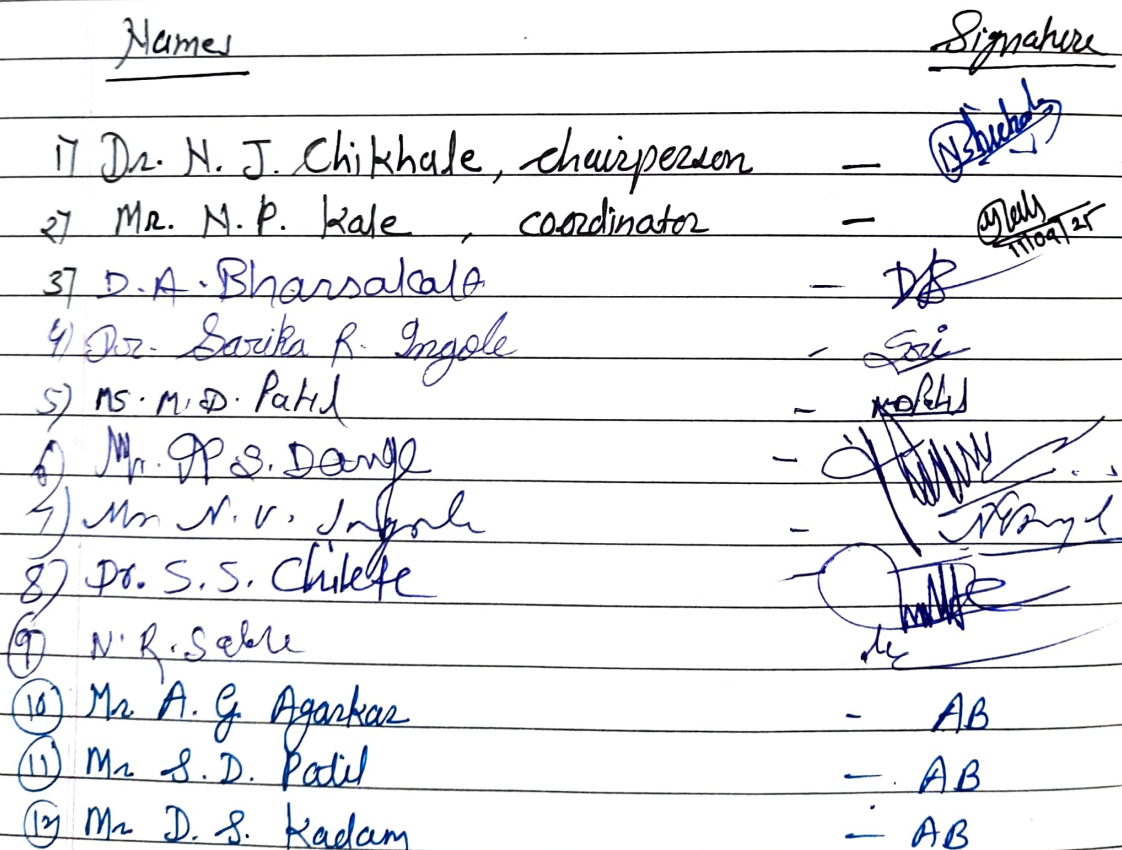 Names Signature
1) Dr. N. J. Chikhale, chairperson -
2) Mr. N. P. Kale, coordinator - 11/09/25
3) D. A. Bharsakale - DB
4) Dr. Sarika R. Ingole - Sari
5) Ms. M. D. Patil - M.D.Patil
6) Mr. P. S. Dange -
7) Mr N. V. Ingole -
8) Dr. S. S. Chikte -
9) N. R. Sable
10) Mr A. G. Agarkar - AB
11) Mr S. D. Patil - AB
12) Mr D. S. Kadam - AB